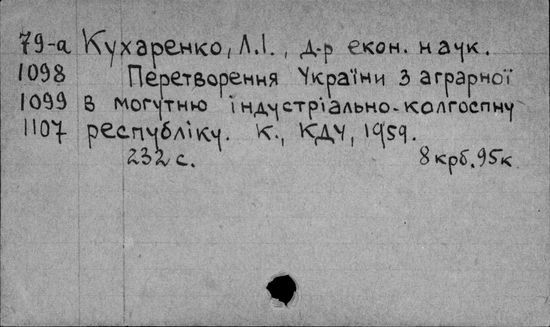 79-а Кухаренко, Л.І., д-р екон. наук.
1098 Перетворення України з аграрної
1099 в могутню індустріально-колгоспну
1107 республіку. К., КДУ, 1959.
232 с. 8 крб. 95 к